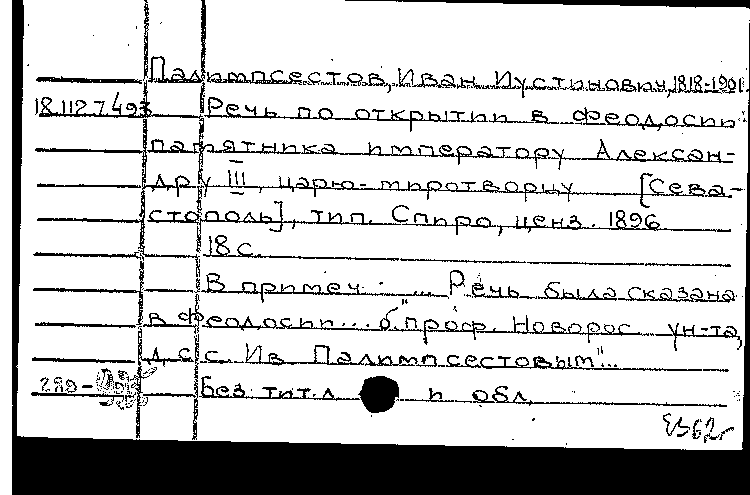 Палимпсестов, Иван Иустинович, 1818-1901.
18.112.7.493 Речь по открытии в Феодосии
памятника императору Алексан-
дру III, царю-миротворцу [Сева-
стополь], тип. Спиро, ценз. 1896
18 с.
В примеч: "... Речь была сказана
в Феодосии... б. проф. Новорос ун-та,
д.с.с. Ив Палимпсестовым"...
Без тит. л и обл.